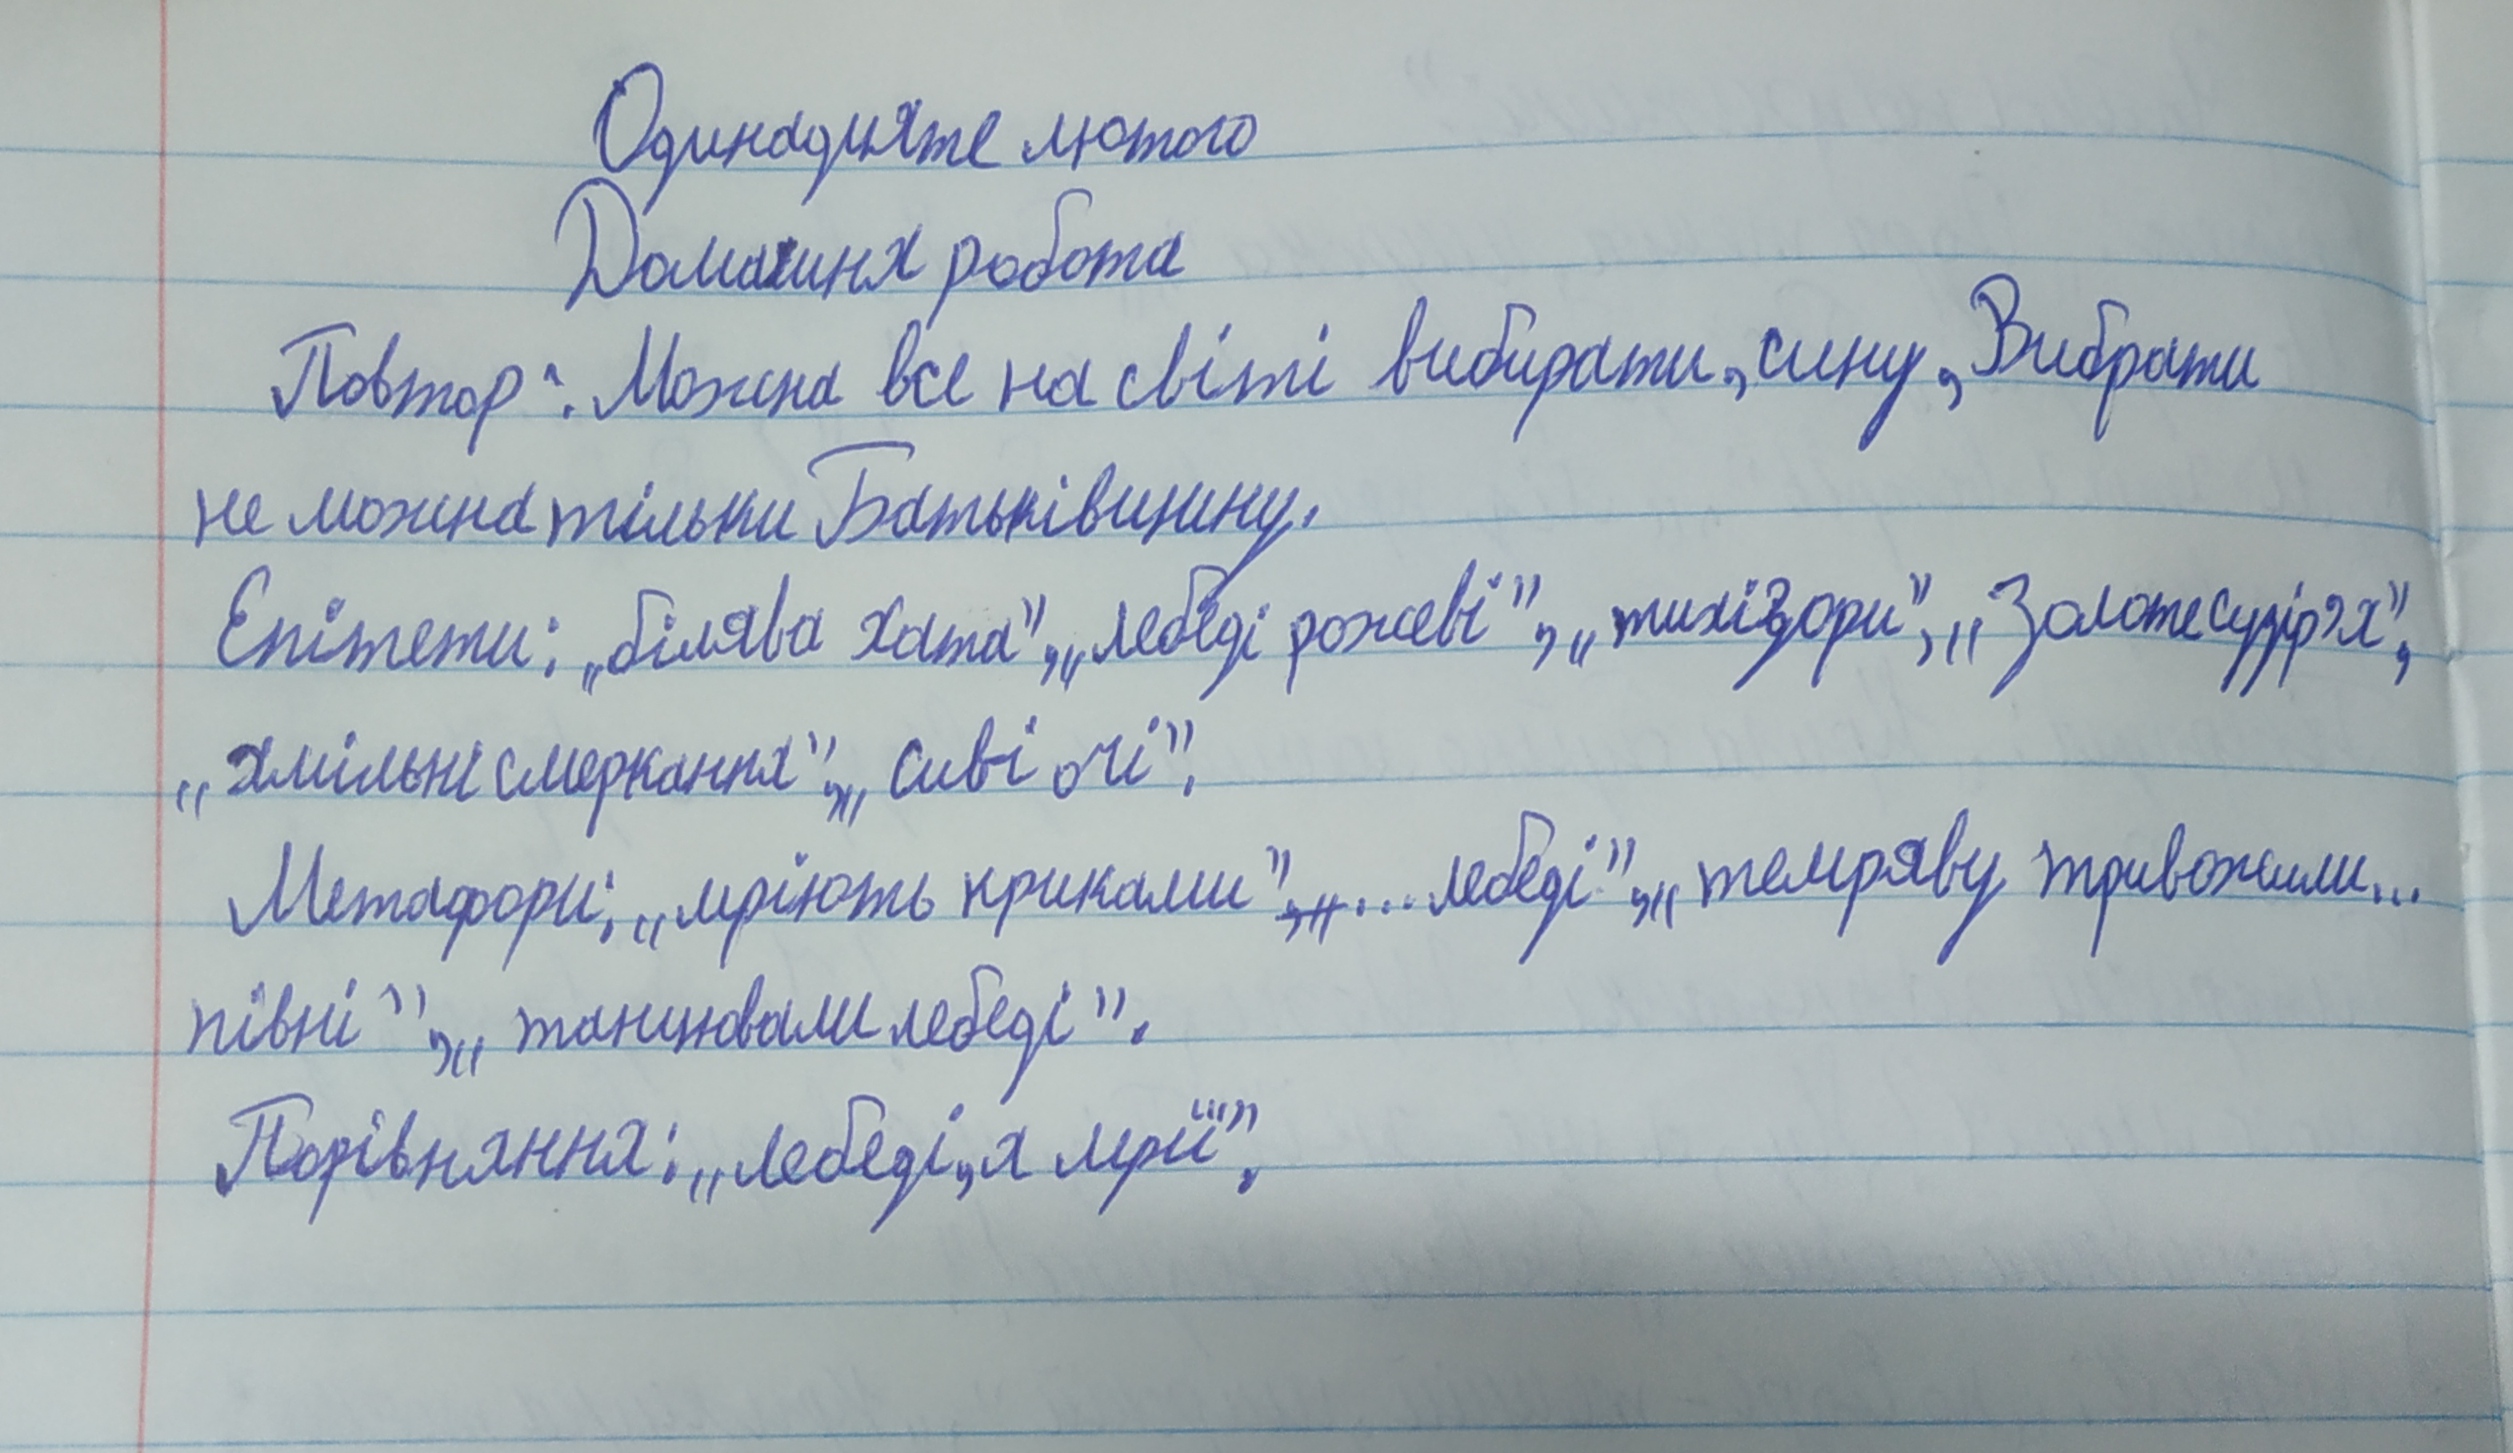 Одинадцяте лютого
Домашня робота
Повтор: Можна все на світі вибирати, сину, Вибрати
не можна тільки Батьківщину.
Епітети: „білява хата", „лебеді рожеві", „тихі зори", „Золоте сузір'я",
„хмільні смеркання", „сиві очі".
Метафори: „мріють крилами", „... лебеді", „темряву тривожили...
півні", „танцювали лебеді".
Порівняння: „лебеді, я мрії".